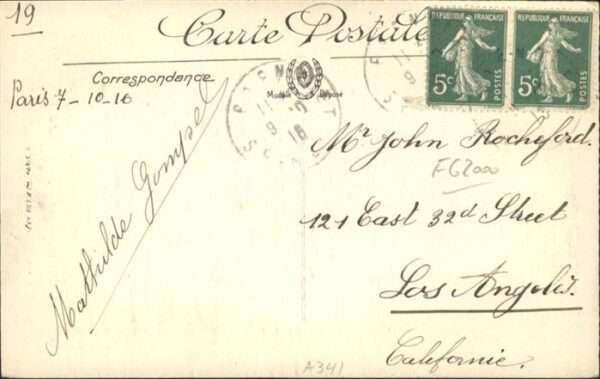 19
Carte Postale
RÉPUBLIQUE FRANÇAISE
5c POSTES
RÉPUBLIQUE FRANÇAISE
5c POSTES
Correspondance
Modèle Déposé
Paris 7-10-16
Mathilde Gompel
Mr John Rocheford.
F62000
121 East 32d Street
Los Angeles.
Californie.
A341